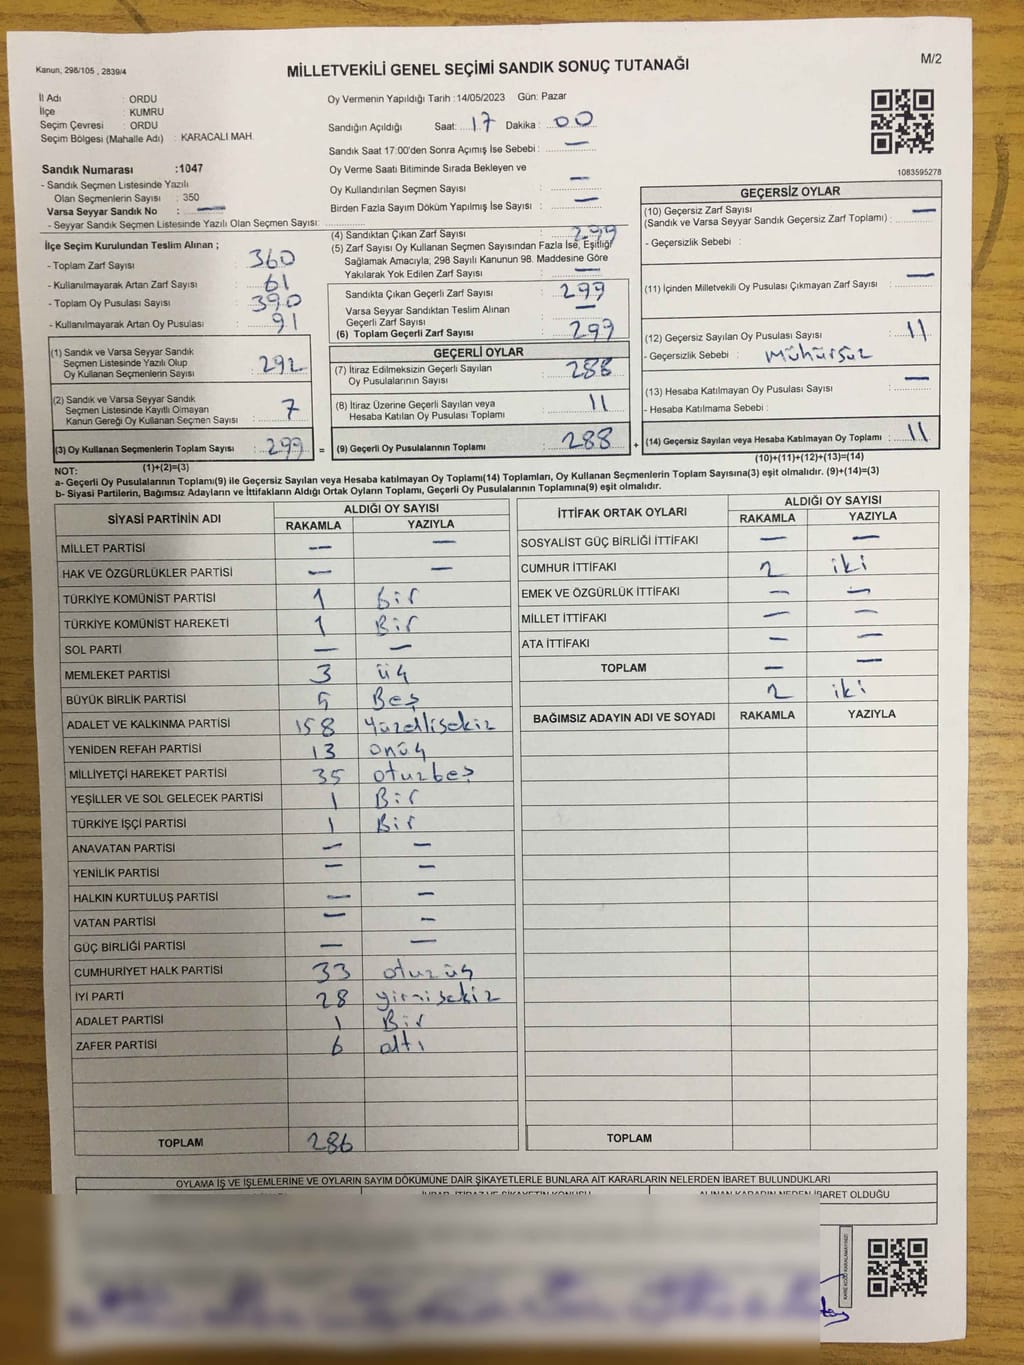 Kanun; 298/105 , 2839/4
MİLLETVEKİLİ GENEL SEÇİMİ SANDIK SONUÇ TUTANAĞI
M/2
İl Adı : ORDU
İlçe : KUMRU
Seçim Çevresi : ORDU
Seçim Bölgesi (Mahalle Adı) : KARACALI MAH.
Oy Vermenin Yapıldığı Tarih :14/05/2023 Gün: Pazar
Sandığın Açıldığı Saat: 17 Dakika : 00
Sandık Saat 17:00'den Sonra Açımış İse Sebebi : —
Oy Verme Saati Bitiminde Sırada Bekleyen ve
Oy Kullandırılan Seçmen Sayısı : —
Birden Fazla Sayım Döküm Yapılmış İse Sayısı : —
1083595278
Sandık Numarası :1047
- Sandık Seçmen Listesinde Yazılı
Olan Seçmenlerin Sayısı : 350
Varsa Seyyar Sandık No : —
- Seyyar Seçmen Sandık Listesinde Yazılı Olan Seçmen Sayısı:
İlçe Seçim Kurulundan Teslim Alınan ;
- Toplam Zarf Sayısı : 360
- Kullanılmayarak Artan Zarf Sayısı : 61
- Toplam Oy Pusulası Sayısı : 390
- Kullanılmayarak Artan Oy Pusulası : 91
(1) Sandık ve Varsa Seyyar Sandık
Seçmen Listesinde Yazılı Olup
Oy Kullanan Seçmenlerin Sayısı : 292
(2) Sandık ve Varsa Seyyar Sandık
Seçmen Listesinde Kayıtlı Olmayan
Kanun Gereği Oy Kullanan Seçmen Sayısı : 7
(3) Oy Kullanan Seçmenlerin Toplam Sayısı : 299 =
(1)+(2)=(3)
(4) Sandıktan Çıkan Zarf Sayısı : 299
(5) Zarf Sayısı Oy Kullanan Seçmen Sayısından Fazla İse, Eşitliği
Sağlamak Amacıyla, 298 Sayılı Kanunun 98. Maddesine Göre
Yakılarak Yok Edilen Zarf Sayısı : —
Sandıkta Çıkan Geçerli Zarf Sayısı : 299
Varsa Seyyar Sandıktan Teslim Alınan
Geçerli Zarf Sayısı : —
(6) Toplam Geçerli Zarf Sayısı : 299
GEÇERLİ OYLAR
(7) İtiraz Edilmeksizin Geçerli Sayılan
Oy Pusulalarının Sayısı : 288
(8) İtiraz Üzerine Geçerli Sayılan veya
Hesaba Katılan Oy Pusulası Toplamı : 11
(9) Geçerli Oy Pusulalarının Toplamı : 288 +
GEÇERSİZ OYLAR
(10) Geçersiz Zarf Sayısı
(Sandık ve Varsa Seyyar Sandık Geçersiz Zarf Toplamı) : —
- Geçersizlik Sebebi :
(11) İçinden Milletvekili Oy Pusulası Çıkmayan Zarf Sayısı : —
(12) Geçersiz Sayılan Oy Pusulası Sayısı : 11
- Geçersizlik Sebebi : mühürsüz
(13) Hesaba Katılmayan Oy Pusulası Sayısı : —
- Hesaba Katılmama Sebebi :
(14) Geçersiz Sayılan veya Hesaba Katılmayan Oy Toplamı : 11
(10)+(11)+(12)+(13)=(14)
NOT:
a- Geçerli Oy Pusulalarının Toplamı(9) ile Geçersiz Sayılan veya Hesaba katılmayan Oy Toplamı(14) Toplamları, Oy Kullanan Seçmenlerin Toplam Sayısına(3) eşit olmalıdır. (9)+(14)=(3)
b- Siyasi Partilerin, Bağımsız Adayların ve İttifakların Aldığı Ortak Oyların Toplamı, Geçerli Oy Pusulalarının Toplamına(9) eşit olmalıdır.
SİYASİ PARTİNİN ADI ALDIĞI OY SAYISI
RAKAMLA YAZIYLA
MİLLET PARTİSİ — —
HAK VE ÖZGÜRLÜKLER PARTİSİ — —
TÜRKİYE KOMÜNİST PARTİSİ 1 bir
TÜRKİYE KOMÜNİST HAREKETİ 1 Bir
SOL PARTİ — —
MEMLEKET PARTİSİ 3 üç
BÜYÜK BİRLİK PARTİSİ 5 Beş
ADALET VE KALKINMA PARTİSİ 158 Yüzellisekiz
YENİDEN REFAH PARTİSİ 13 onüç
MİLLİYETÇİ HAREKET PARTİSİ 35 otuzbeş
YEŞİLLER VE SOL GELECEK PARTİSİ 1 Bir
TÜRKİYE İŞÇİ PARTİSİ 1 Bir
ANAVATAN PARTİSİ — —
YENİLİK PARTİSİ — —
HALKIN KURTULUŞ PARTİSİ — —
VATAN PARTİSİ — —
GÜÇ BİRLİĞİ PARTİSİ — —
CUMHURİYET HALK PARTİSİ 33 otuzüç
İYİ PARTİ 28 yirmisekiz
ADALET PARTİSİ 1 Bir
ZAFER PARTİSİ 6 altı
TOPLAM 286
İTTİFAK ORTAK OYLARI ALDIĞI OY SAYISI
RAKAMLA YAZIYLA
SOSYALİST GÜÇ BİRLİĞİ İTTİFAKI — —
CUMHUR İTTİFAKI 2 iki
EMEK VE ÖZGÜRLÜK İTTİFAKI — —
MİLLET İTTİFAKI — —
ATA İTTİFAKI — —
TOPLAM — —
2 iki
BAĞIMSIZ ADAYIN ADI VE SOYADI RAKAMLA YAZIYLA
TOPLAM
OYLAMA İŞ VE İŞLEMLERİNE VE OYLARIN SAYIM DÖKÜMÜNE DAİR ŞİKAYETLERLE BUNLARA AİT KARARLARIN NELERDEN İBARET BULUNDUKLARI
ALINAN KARARIN NEDEN İBARET OLDUĞU